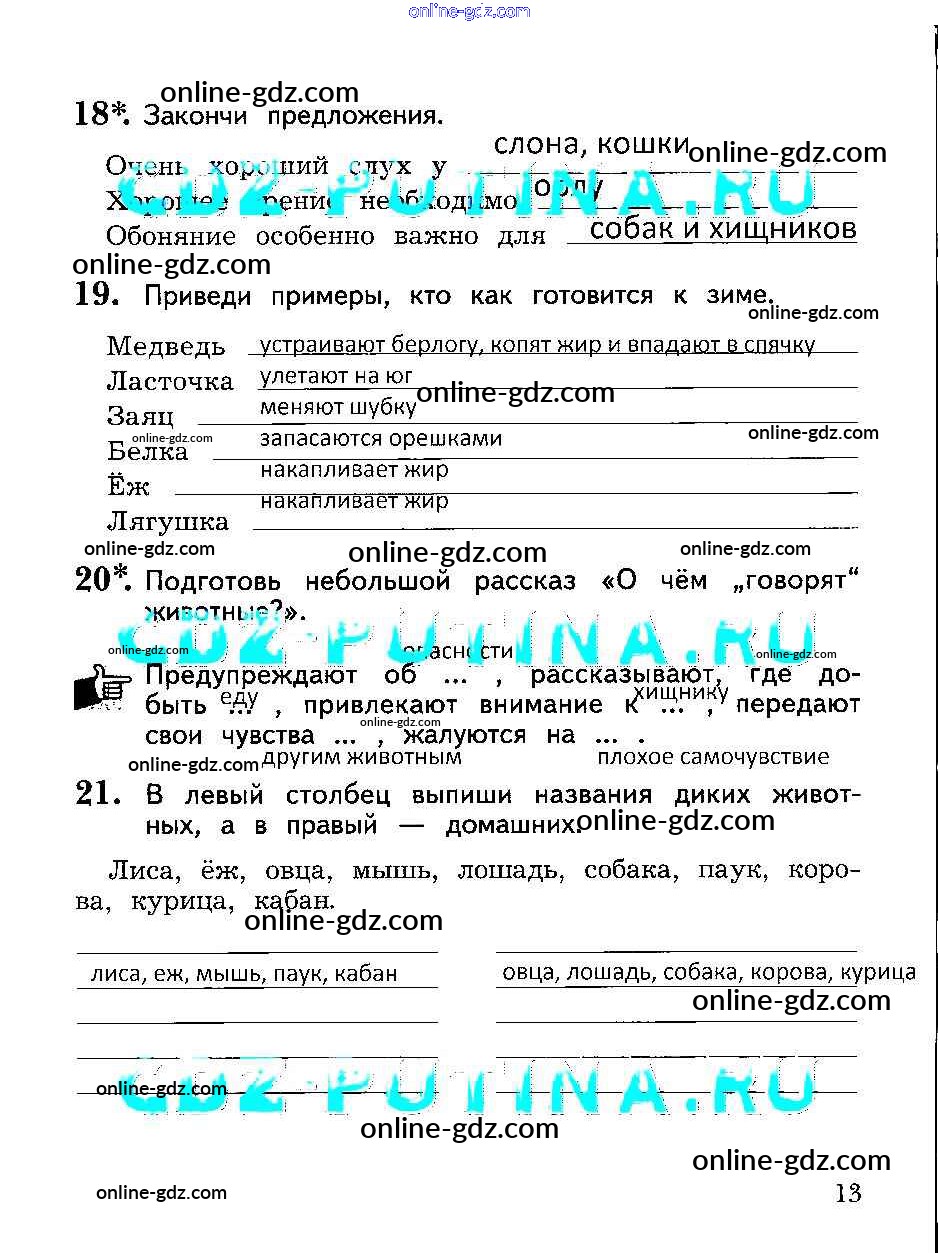 online-gdz.com
online-gdz.com
18*. Закончи предложения.
слона, кошки online-gdz.com
Очень хороший слух у
GDZ-PUTINA.RU
орлу
Хорошее зрение необходимо
Обоняние особенно важно для собак и хищников
online-gdz.com
19. Приведи примеры, кто как готовится к зиме.
online-gdz.com
Медведь устраивают берлогу, копят жир и впадают в спячку
Ласточка улетают на юг
online-gdz.com
Заяц меняют шубку
online-gdz.com запасаются орешками online-gdz.com
Белка
накапливает жир
Ёж
накапливает жир
Лягушка
online-gdz.com online-gdz.com online-gdz.com
20*. Подготовь небольшой рассказ «О чём „говорят“
животные?».
GDZ-PUTINA.RU
online-gdz.com опасности online-gdz.com
Предупреждают об ... , рассказывают, где до-
еду хищнику
быть ... , привлекают внимание к ... , передают
online-gdz.com
свои чувства ... , жалуются на ... .
online-gdz.com другим животным плохое самочувствие
21. В левый столбец выпиши названия диких живот-
ных, а в правый — домашних.
online-gdz.com
Лиса, ёж, овца, мышь, лошадь, собака, паук, коро-
ва, курица, кабан.
online-gdz.com
лиса, еж, мышь, паук, кабан овца, лошадь, собака, корова, курица
online-gdz.com
GDZ-PUTINA.RU
online-gdz.com
online-gdz.com
online-gdz.com
online-gdz.com 13